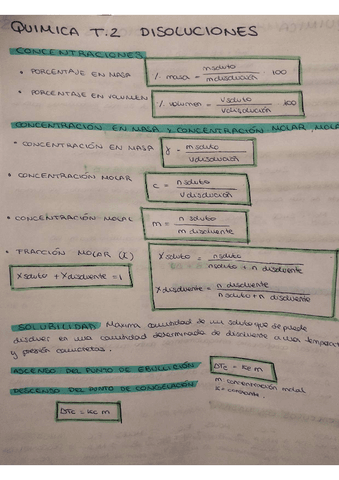 QUIMICA T.2 DISOLUCIONES
CONCENTRACIONES
• PORCENTAJE EN MASA % masa = msoluto / mdisolución 100
• PORCENTAJE EN VOLUMEN % volumen = Vsoluto / Vdisolución 100
CONCENTRACIÓN EN MASA Y CONCENTRACIÓN MOLAR, MOLA
• CONCENTRACIÓN EN MASA γ = msoluto / Vdisolución
• CONCENTRACIÓN MOLAR c = n soluto / V disolución
• CONCENTRACIÓN MOLAL m = n soluto / m disolvente
• FRACCIÓN MOLAR (X) Xsoluto = nsoluto / nsoluto + n disolvente
Xsoluto + Xdisolvente = 1 Xdisolvente = n disolvente / n soluto + n disolvente
SOLUBILIDAD Máxima cantidad de un soluto que se puede
disolver en una cantidad determinada de disolvente a una temperat
y presión concretas.
ASCENSO DEL PUNTO DE EBULLICIÓN ΔTe = Ke m
m concentración molal
K = constante
DESCENSO DEL PUNTO DE CONGELACIÓN
ΔTc = Kc m